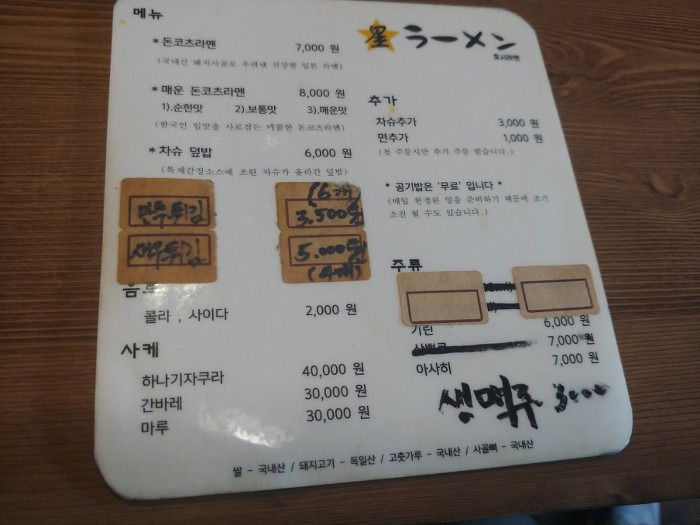 메뉴
* 돈코츠라멘 7,000 원
(국내산 돼지사골로 우려낸 건강한 일본 라멘)
* 매운 돈코츠라멘 8,000 원
1).순한맛 2).보통맛 3).매운맛
(한국인 입맛을 사로잡는 매콤한 돈코츠라멘)
* 차슈 덮밥 6,000 원
(특제간장소스에 조린 차슈가 올라간 덮밥)
만두튀김 (6개) 3.500원
새우튀김 5.000원 (4개)
음료
콜라 , 사이다 2,000 원
사케
하나기자쿠라 40,000 원
간바레 30,000 원
마루 30,000 원
星 ラーメン
호시라멘
추가
차슈추가 3,000 원
면추가 1,000 원
(첫 주문시만 추가 주문 받습니다.)
* 공기밥은 '무료' 입니다 *
(매일 한정된 양을 준비하기 때문에 조기
소진 될 수도 있습니다.)
주류
기린 6,000 원
7,000 원
아사히 7,000 원
생맥주 3000
쌀 - 국내산 / 돼지고기 - 독일산 / 고춧가루 - 국내산 / 사골뼈 - 국내산